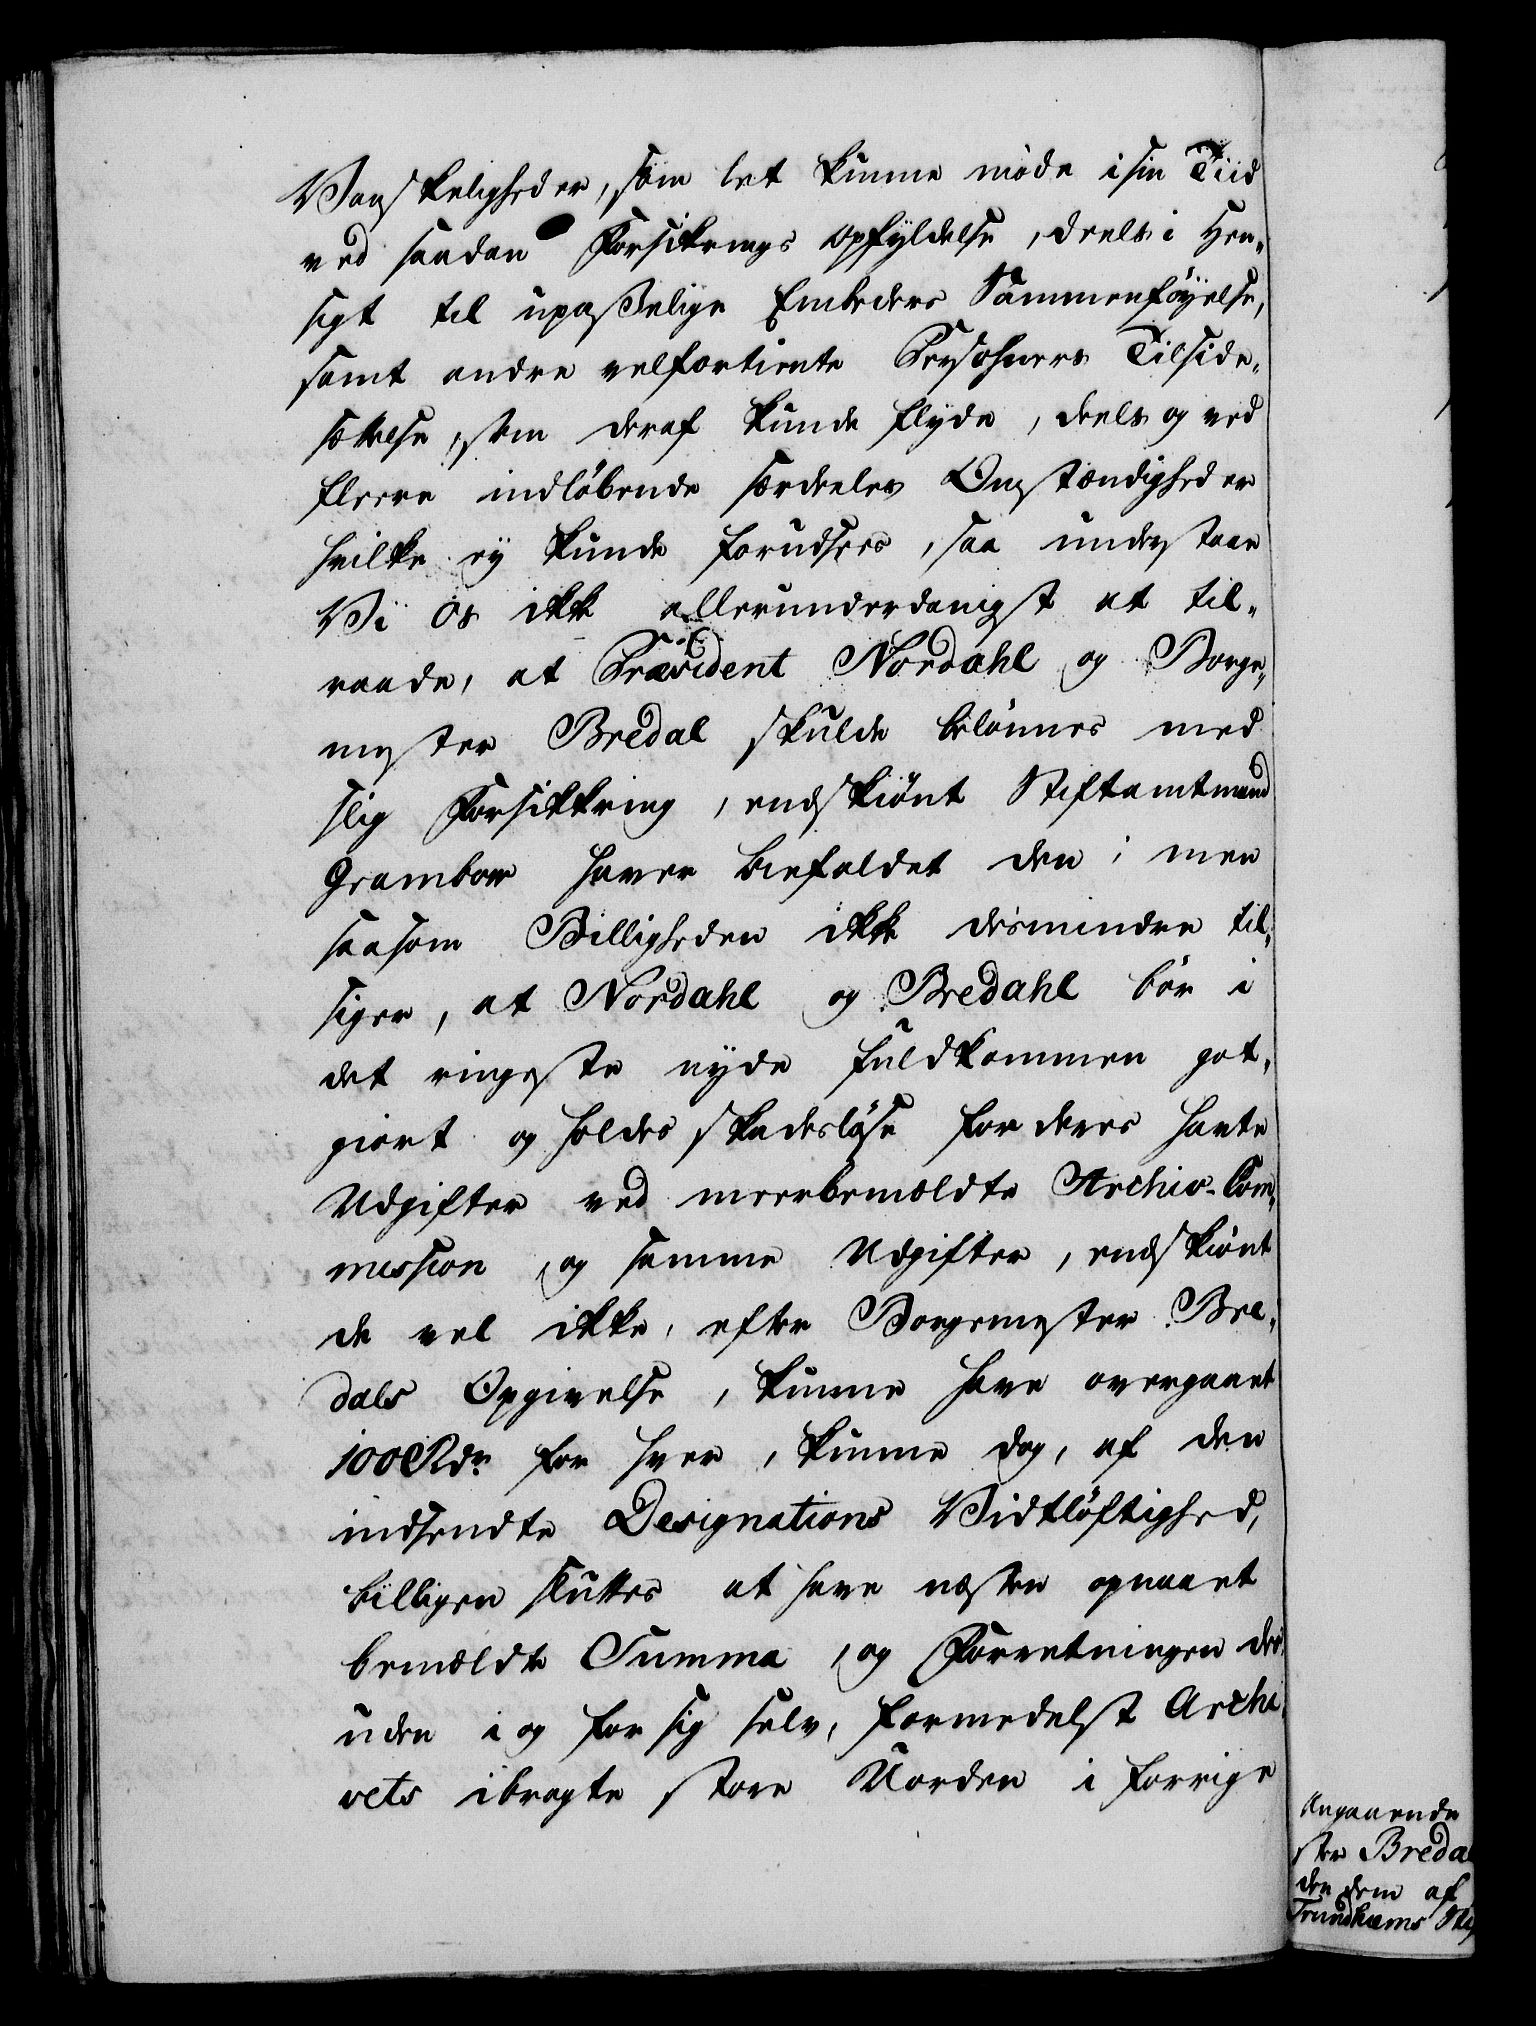 Vanskeligheder, som let kunne møde i sin Tiid
ved saadan Forsikrings opfyldelse, deels i Hen-
sigt til upaßelige Embeders Sammenføyelse,
samt andre velfortiente Persohners Tilside-
sættelse, som deraf kunde flyde, deels og ved
fleere indløbende særdeeles Omstændigheder
hvilke ey kunde forudsees, saa understaae
Vi os ikke allerunderdanigst at til-
raade, at Præsident Nordahl og Borge-
mester Bredal skulde belønnes med
slig Forsikkring, endskiønt Stiftamtmand
Grambow haver biefaldet den; men
saasom Billigheden ikke desmindre til-
siger, at Nordahl og Bredahl bør i
det ringeste nyde fuldkommen got-
giort og holdes skadesløse for deres havte
Udgifter ved meerbemældte Archiv-Com-
mission, og samme Udgifter, endskiønt
de vel ikke, efter Borgemester Bre-
dals Opgivelse, kunne have overgaaet
100 Rdr for hver, kunne dog, af den
indsendte Designations Vidtløftighed,
billigen sluttes at have næsten opnaaet
bemældte Summa, og Forretningen des-
uden i og for sig selv, formedelst Archi-
vets ibragte store Uorden i forrige
Angaaende
ster Breda
den dem af
Trundhiems